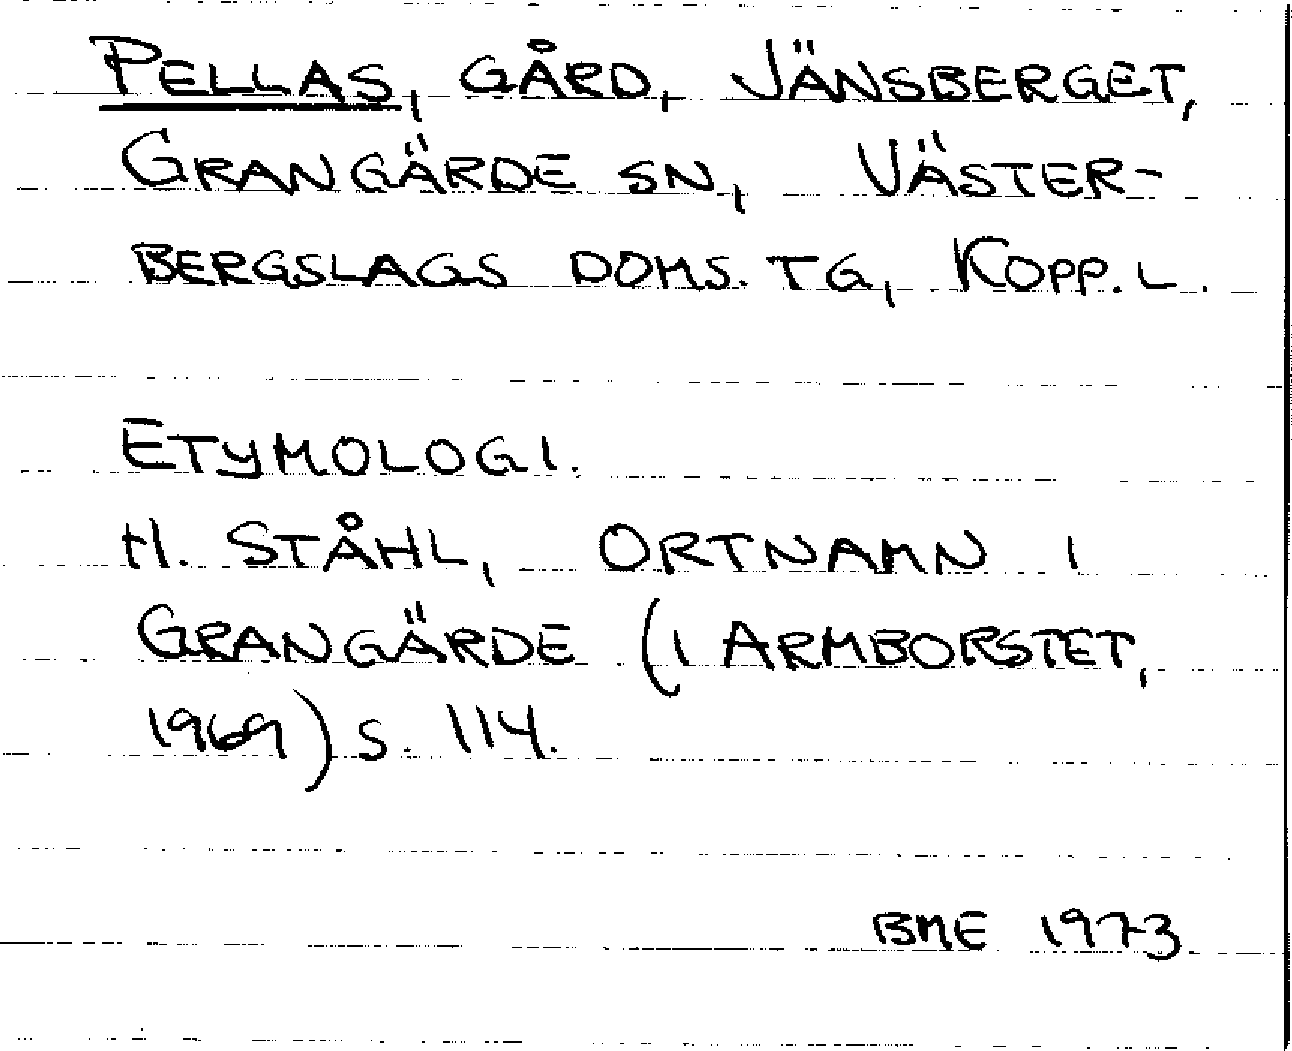 PELLAS, GÅRD, JÄNSBERGET,
GRANGÄRDE SN, VÄSTER-
BERGSLAGS DOMS. TG, KOPP. L.
ETYMOLOGI.
H. STÅHL, ORTNAMN I
GRANGÄRDE (I ARMBORSTET,
1969) S. 114.
BME 1973